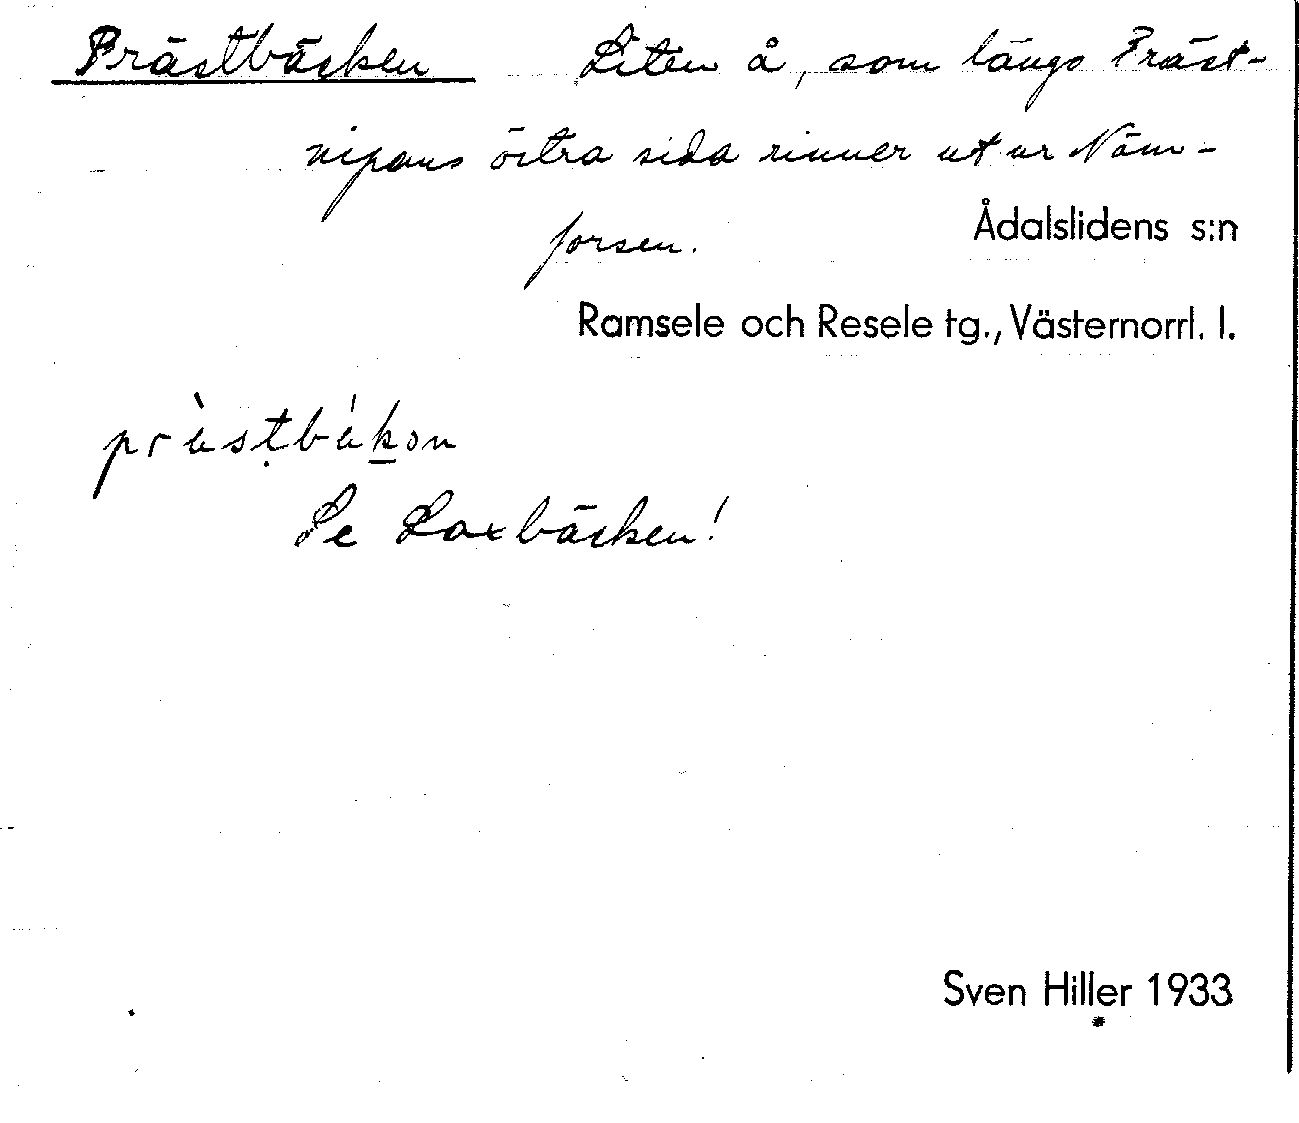 Prästbäcken Liten å, som längs Präst-
nipans östra sida rinner ut ur Näm-
forsen.
Ådalslidens s:n
Ramsele och Resele tg., Västernorrl. l.
Se Laxbäcken!
Sven Hiller 1933